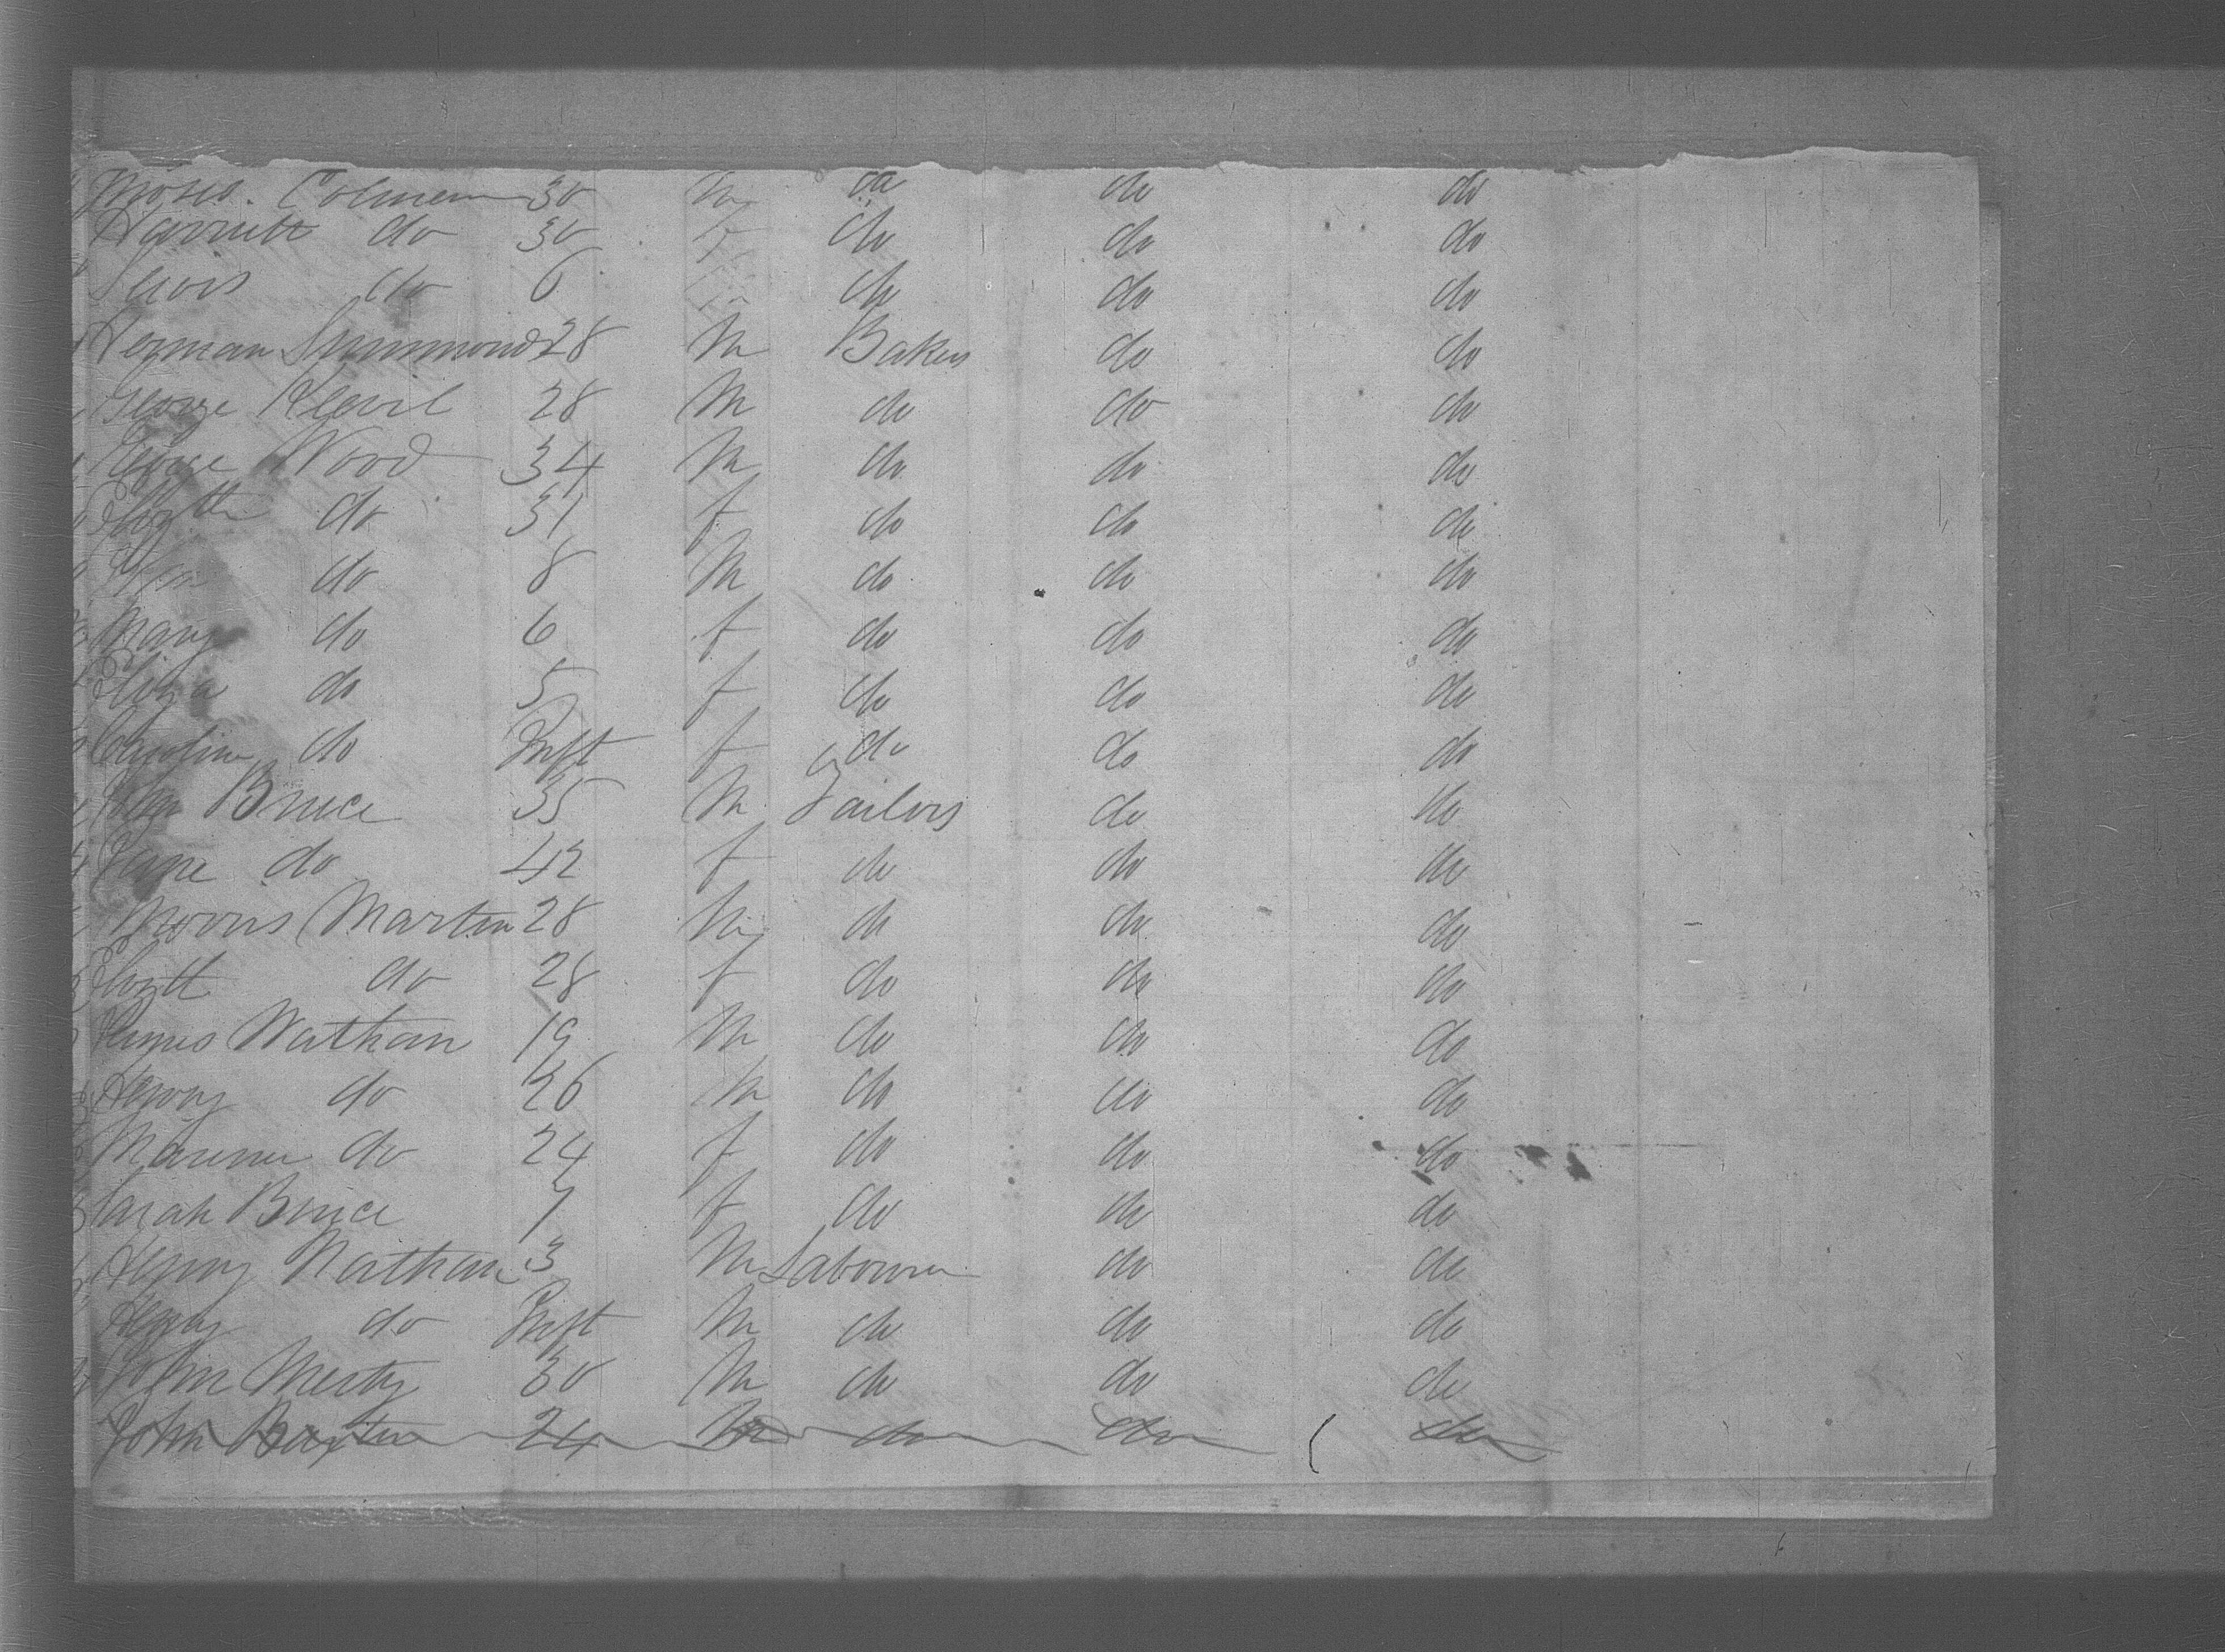 Moses. Colmen 30 M do do do
Harriett do 30 f do do do
Lewis do 6 m do do do
Herman Summond 28 M Bakers do do
George Klevil 28 M do do do
George Wood 34 M do do do
Elizth do 31 f do do do
Wm do 8 M do do do
Mary do 6 f do do do
Eliza do 5 f do do do
Caroline do Inft f do do do
John Bruce 35 M Tailors do do
Jane do 42 f do do do
Morris Martin 28 M do do do
Elizth do 28 f do do do
James Nathan 19 M do do do
Henry do 26 M do do do
do 24 f do do do
Sarah Bruce 7 f do do do
Henry Nathan 3 M Labourer do do
Henry do Inft M do do do
John Mesty 30 M do do do
John Baxter 24 M do do do